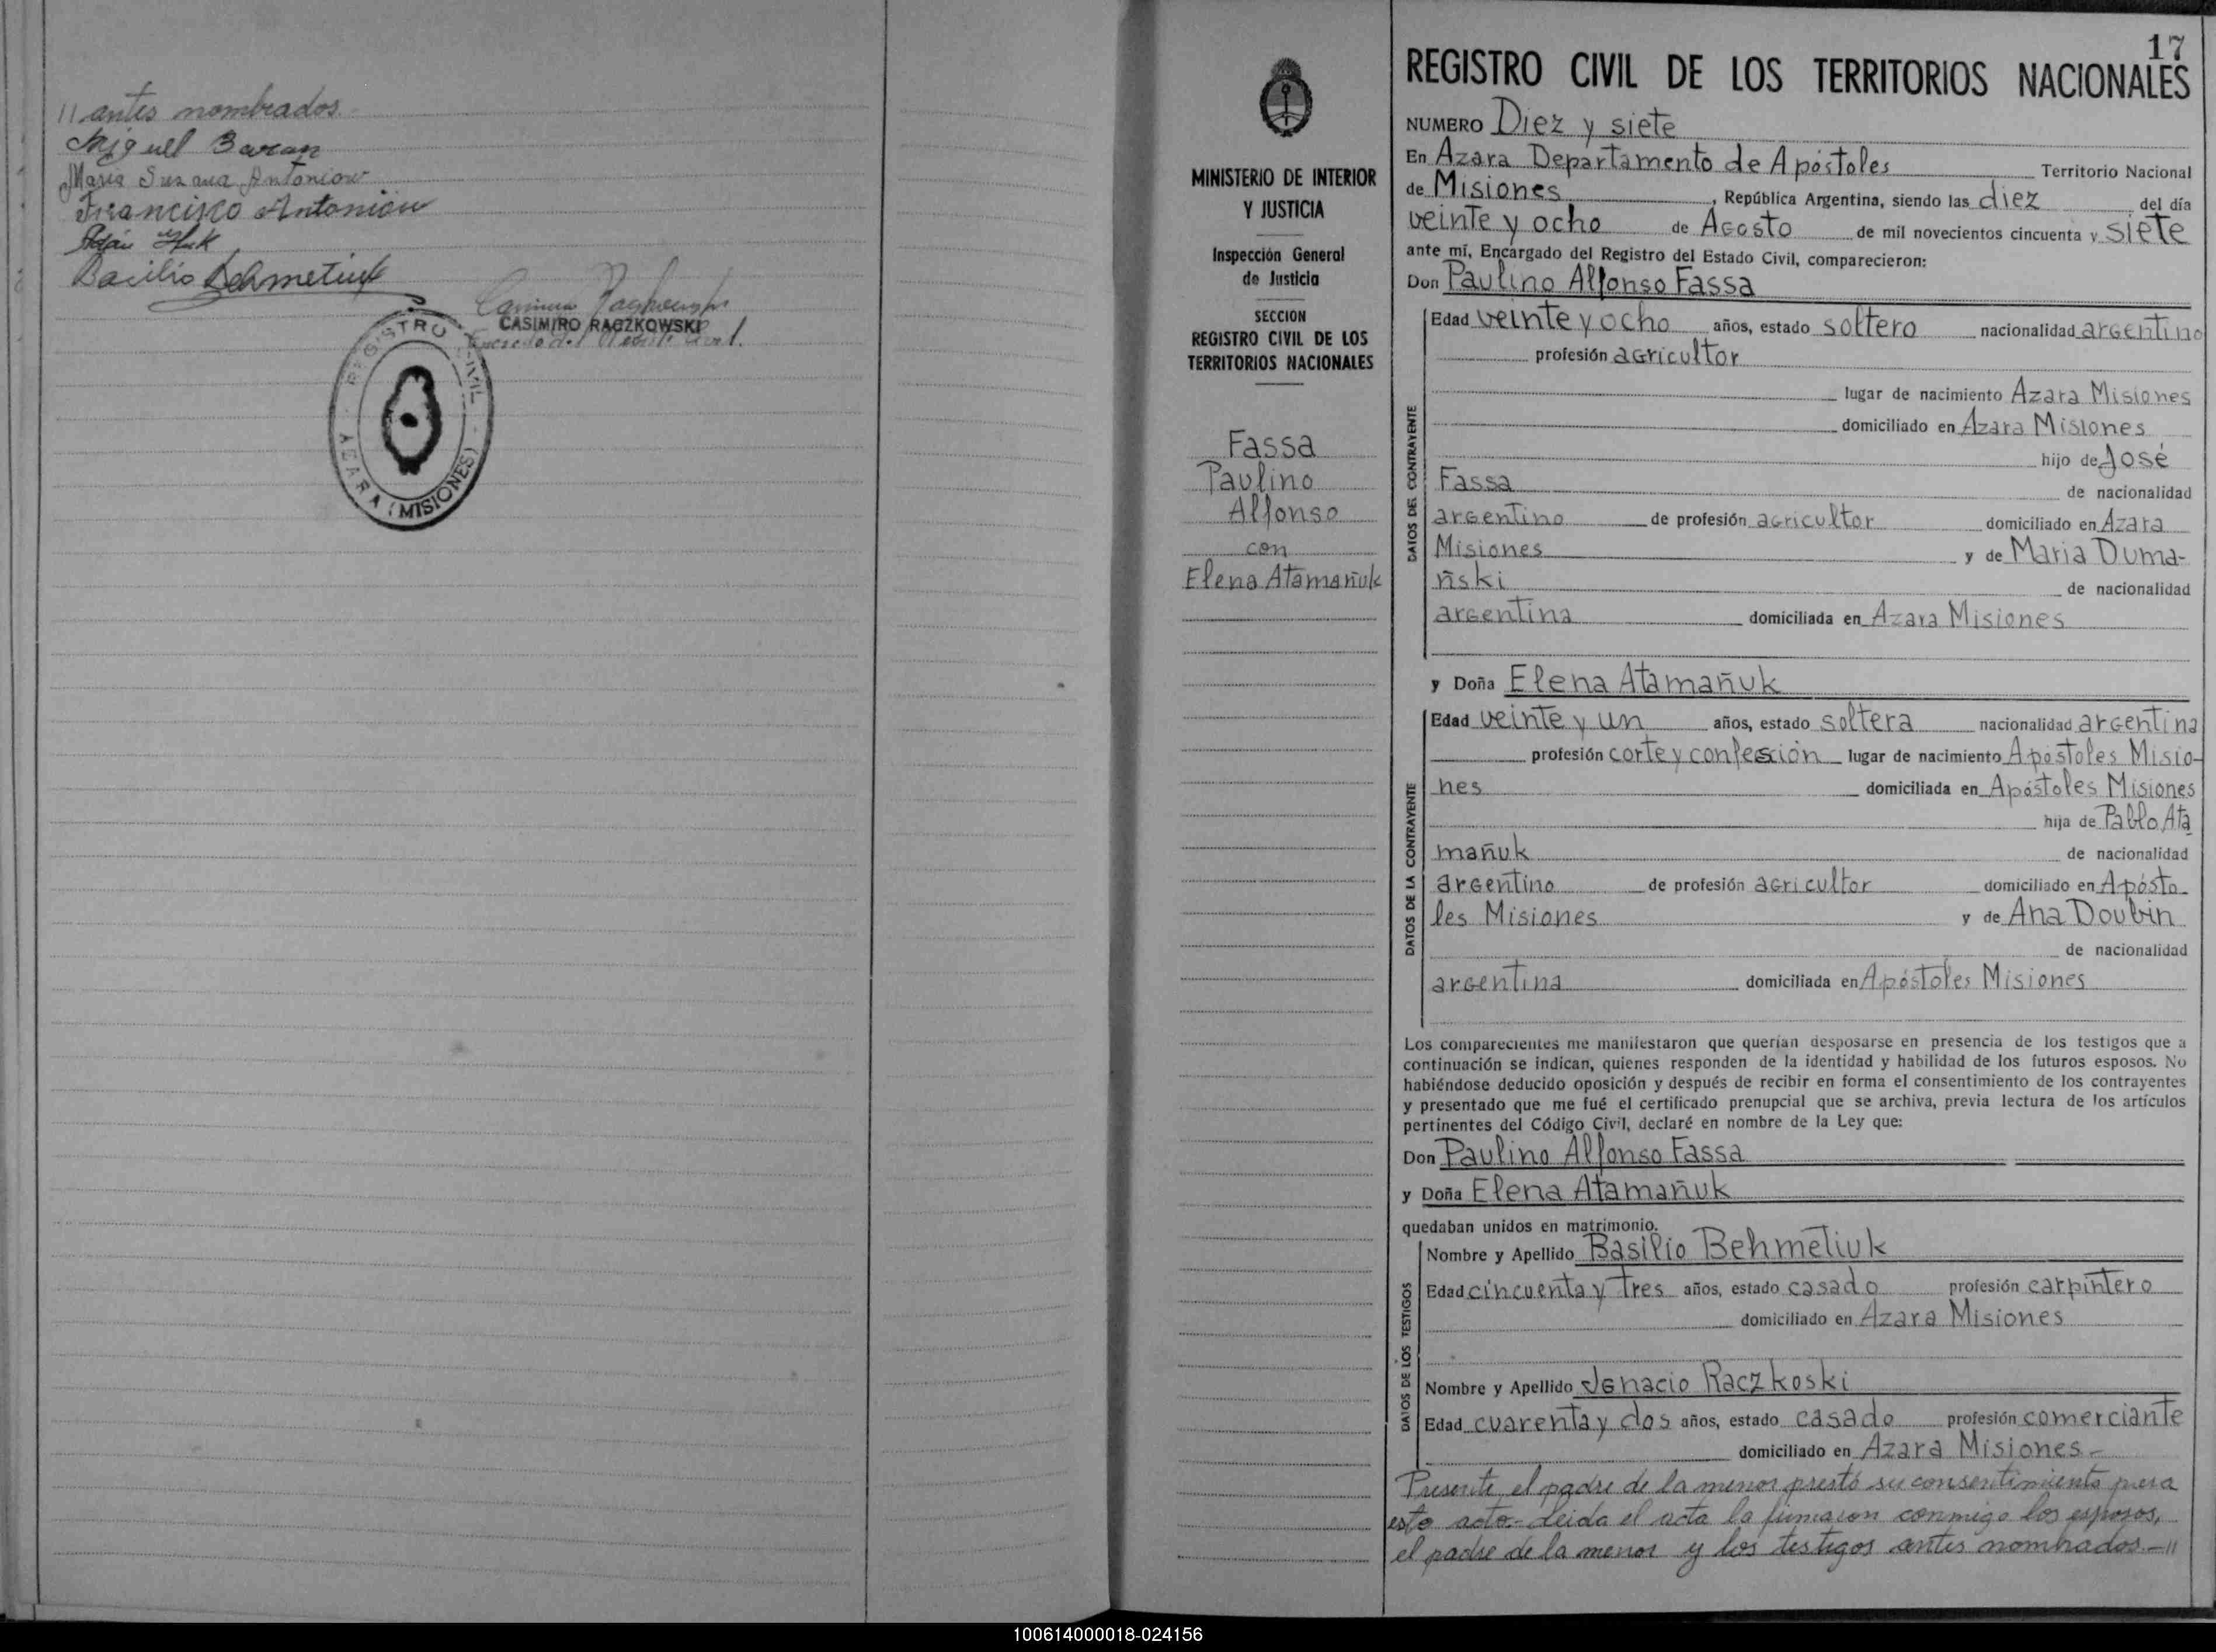 // antes nombrados.
Miguel Baran
Maria Susana Antoniow
Francisco Antoniow
Basilio Behmetiuk
CASIMIRO RACZKOWSKI
REGISTRO CIVIL
AZARA (MISIONES)
17
REGISTRO CIVIL DE LOS TERRITORIOS NACIONALES
MINISTERIO DE INTERIOR
Y JUSTICIA
Inspección General
de Justicia
SECCION
REGISTRO CIVIL DE LOS
TERRITORIOS NACIONALES
Fassa
Paulino
Alfonso
con
Elena Atamañuk
NUMERO Diez y siete
En Azara Departamento de Apóstoles Territorio Nacional
de Misiones, República Argentina, siendo las diez del día
veinte y ocho de Agosto de mil novecientos cincuenta y siete
ante mí, Encargado del Registro del Estado Civil, comparecieron:
Don Paulino Alfonso Fassa
DATOS DEL CONTRAYENTE
Edad veinte y ocho años, estado soltero nacionalidad argentino
profesión agricultor
lugar de nacimiento Azara Misiones
domiciliado en Azara Misiones
hijo de José
Fassa de nacionalidad
argentino de profesión agricultor domiciliado en Azara
Misiones y de Maria Duma-
ñski de nacionalidad
argentina domiciliada en Azara Misiones
y Doña Elena Atamañuk
DATOS DE LA CONTRAYENTE
Edad veinte y un años, estado soltera nacionalidad argentina
profesión corte y confección lugar de nacimiento Apóstoles Misio-
nes domiciliada en Apóstoles Misiones
hija de Pablo Ata
mañuk de nacionalidad
argentino de profesión agricultor domiciliado en Apósto-
les Misiones y de Ana Doubin
de nacionalidad
argentina domiciliada en Apóstoles Misiones
Los comparecientes me manifestaron que querían desposarse en presencia de los testigos que a
continuación se indican, quienes responden de la identidad y habilidad de los futuros esposos. No
habiéndose deducido oposición y después de recibir en forma el consentimiento de los contrayentes
y presentado que me fué el certificado prenupcial que se archiva, previa lectura de los artículos
pertinentes del Código Civil, declaré en nombre de la Ley que:
Don Paulino Alfonso Fassa
y Doña Elena Atamañuk
quedaban unidos en matrimonio.
DATOS DE LOS TESTIGOS
Nombre y Apellido Basilio Behmetiuk
Edad cincuenta y tres años, estado casado profesión carpintero
domiciliado en Azara Misiones
Nombre y Apellido Ignacio Raczkoski
Edad cuarenta y dos años, estado casado profesión comerciante
domiciliado en Azara Misiones-
Presente el padre de la menor prestó su consentimiento para
este acto.- Leida el acta la firmaron conmigo los esposos,
el padre de la menor y los testigos antes nombrados.-//
100614000018-024156